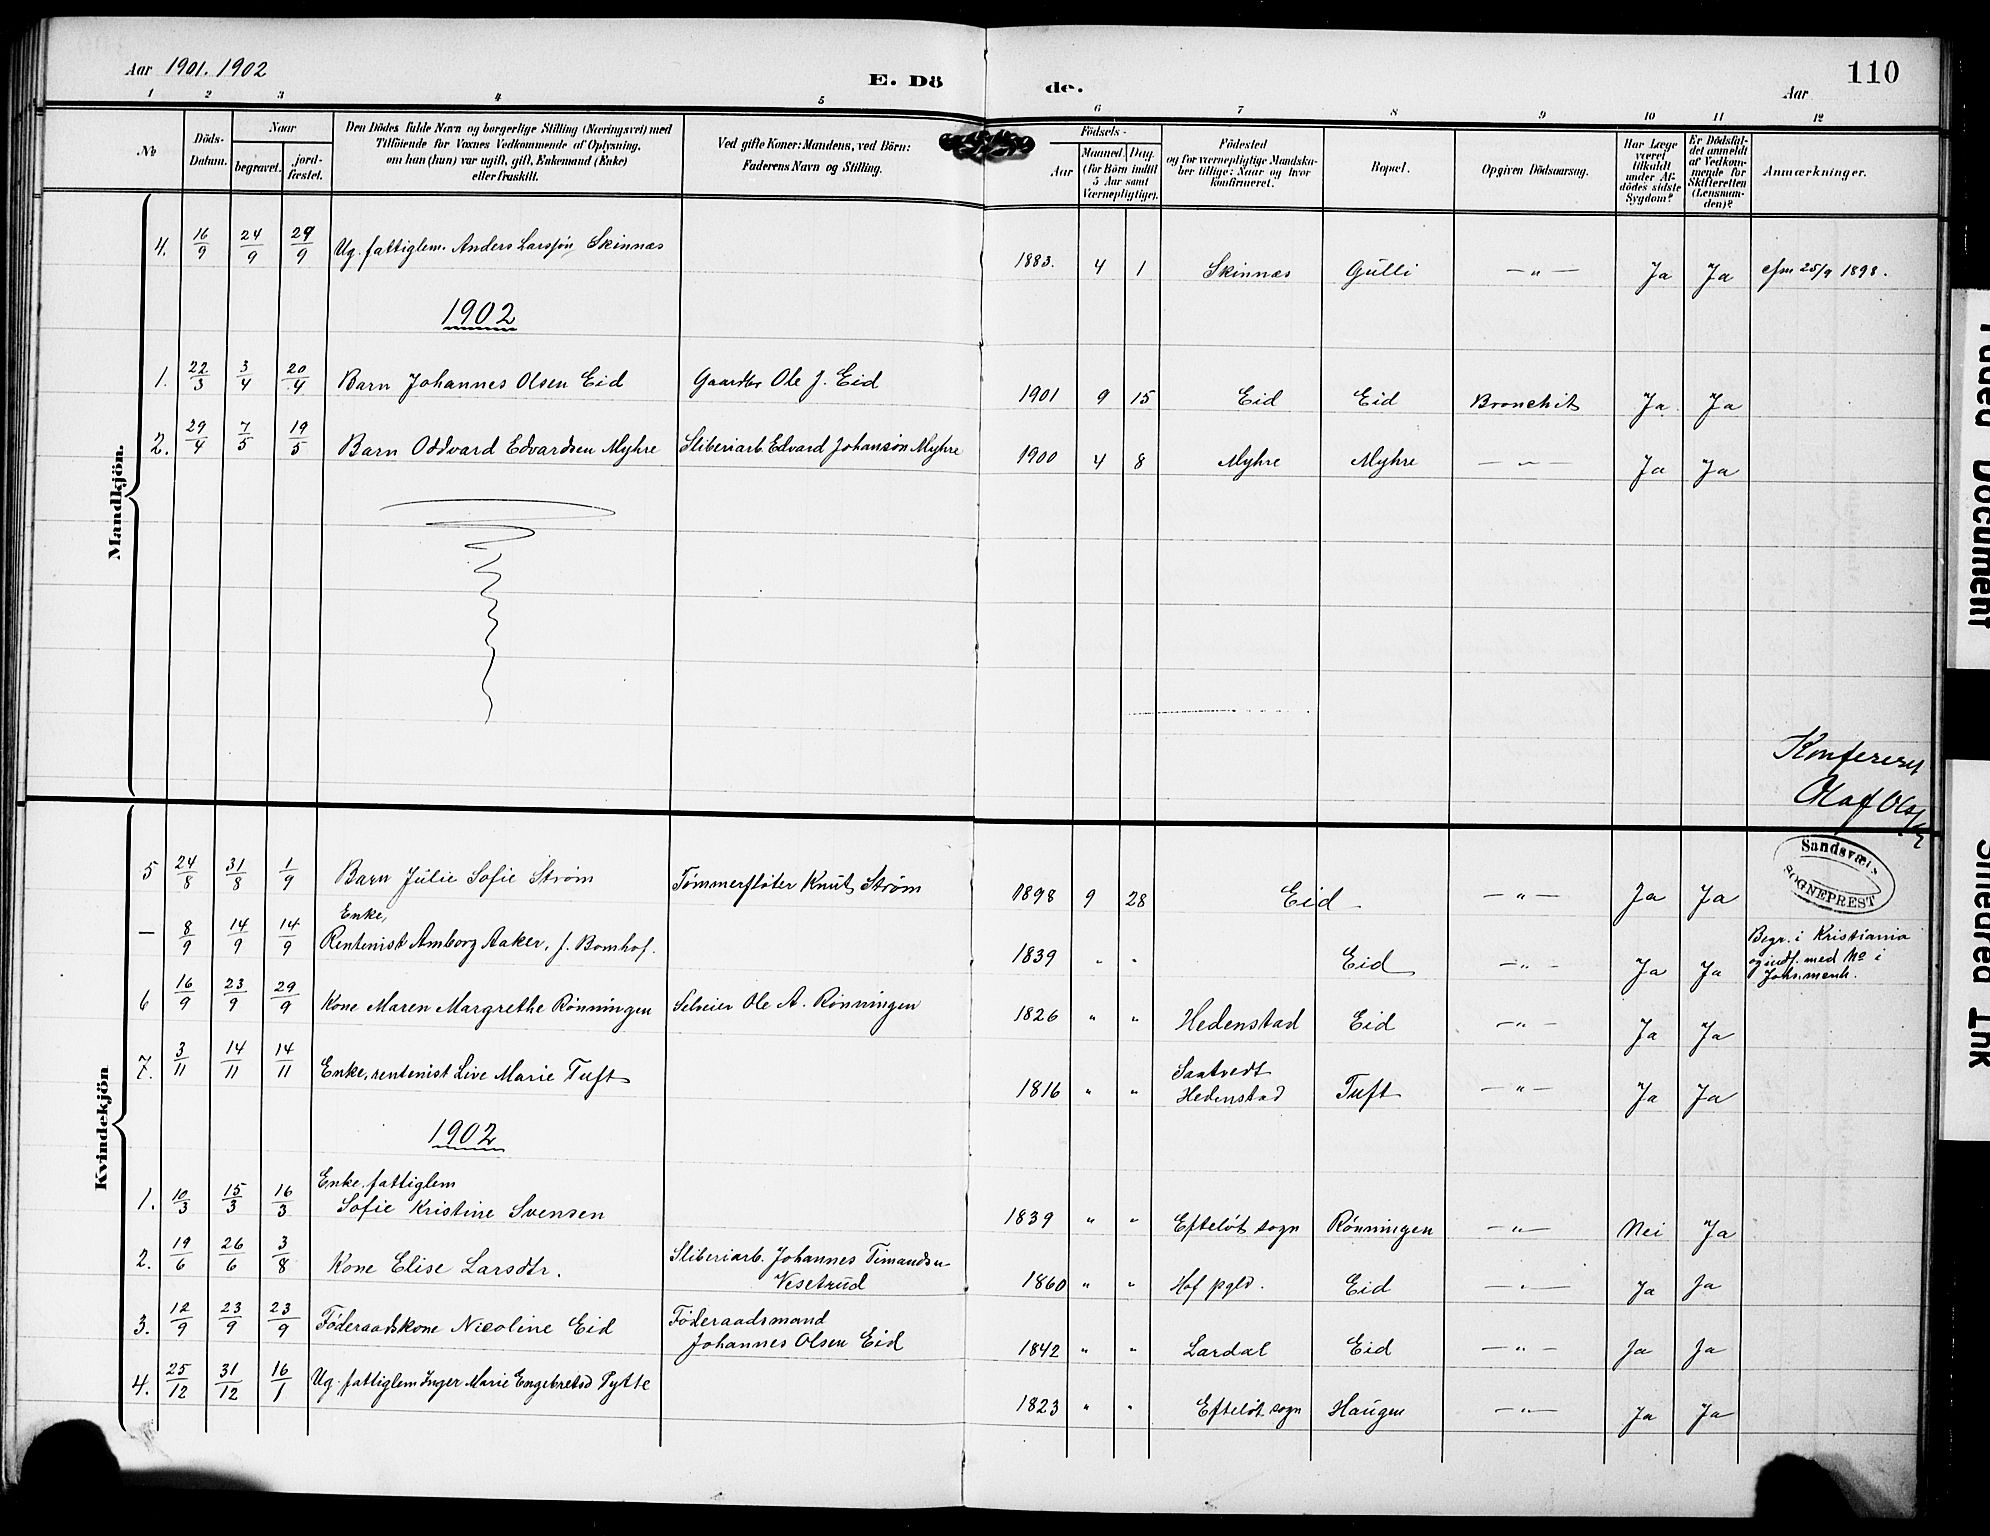 Aar 1901. 1902
E. Dö de.
Aar
110
1 2 3 4 5 6 7 8 9 10 11 12
No
Döds-Datum.
Naar
begravet.
jord-fæstet.
Den Dödes fulde Navn og borgerlige Stilling (Næringsvei) med
Tilföiende for Voxnes Vedkommende af Oplysning,
om han (hun) var ugift, gift, Enkemand (Enke)
eller fraskilt.
Ved gifte Koner: Mandens, ved Börn:
Faderens Navn og Stilling.
Födsels-
Aar
Maaned. Dag.
(for Börn indtil
5 Aar samt
Værnepligtige).
Födested
og for værnepligtige Mandska-
ber tillige: Naar og hvor
konfirmeret.
Bopæl.
Opgiven Dödsaarsag.
Har Læge
været
tilkaldt
under Af-
dödes sidste
Sygdom?
Er Dödsfal-
det anmeldt
af Vedkom-
mende for
Skifteretten
(Lensman-
den)?
Anmærkninger.
Mandkjön.
4. 16/9 24/9 29/9 Ug. fattiglem. Anders Larssøn Skinnæs 1883. 4 1 Skinnæs Gulli — „ — Ja Ja cfm 25/9 1898.
1902
1. 22/3 3/4 20/4 Barn Johannes Olsen Eid Gaardbr Ole J. Eid 1901 9 15 Eid Eid Bronchit Ja Ja
2. 29/4 7/5 19/5 Barn Oddvard Edvardsen Myhre Sliberiarb. Edvard Johansøn Myhre 1900 4 8 Myhre Myhre — „ — Ja Ja
Konfereret
Olaf Olsen
Sandsvær
SOGNEPREST
Kvindekjön
5 24/8 31/8 1/9 Barn Julie Sofie Strøm Tømmerfløter Knut Strøm 1898 9 28 Eid — „ — Ja Ja
— 8/9 14/9 14/9 Enke,
Rentenist Amborg Aaker, f. Bomhof. 1839 „ „ Eid — „ — Ja Ja Begr. i Kristiania
og indf. med No i
Johs. menh.
6 16/9 23/9 29/9 Kone Maren Margrethe Rønningen Selveier Ole A. Rønningen 1826 „ „ Hedenstad Eid — „ — Ja Ja
7. 3/11 14/11 14/11 Enke, rentenist Live Marie Tuft 1816 „ „ Saatvedt
Hedenstad Tuft — „ — Ja Ja
1902
1. 10/3 15/3 16/3 Enke, fattiglem
Sofie Kristine Svensen 1839 „ „ Efteløt sogn Rønningen — „ — Nei Ja
2. 19/6 26/6 3/8 Kone Elise Larsdtr. Sliberiarb. Johannes Timandsen
Vesetrud 1860 „ „ Hof pgld. Eid — „ — Ja Ja
3. 12/9 23/9 23/9 Føderaadskone Nicoline Eid Føderaadsmand
Johannes Olsen Eid 1842 „ „ Lardal Eid — „ — Ja Ja
4. 25/12 31/12 16/1 Ug. fattiglem Inger Marie Engebretsd Tytte 1823 „ „ Efteløt sogn Haugen — „ — Ja Ja
Faded Document
Smeared Ink